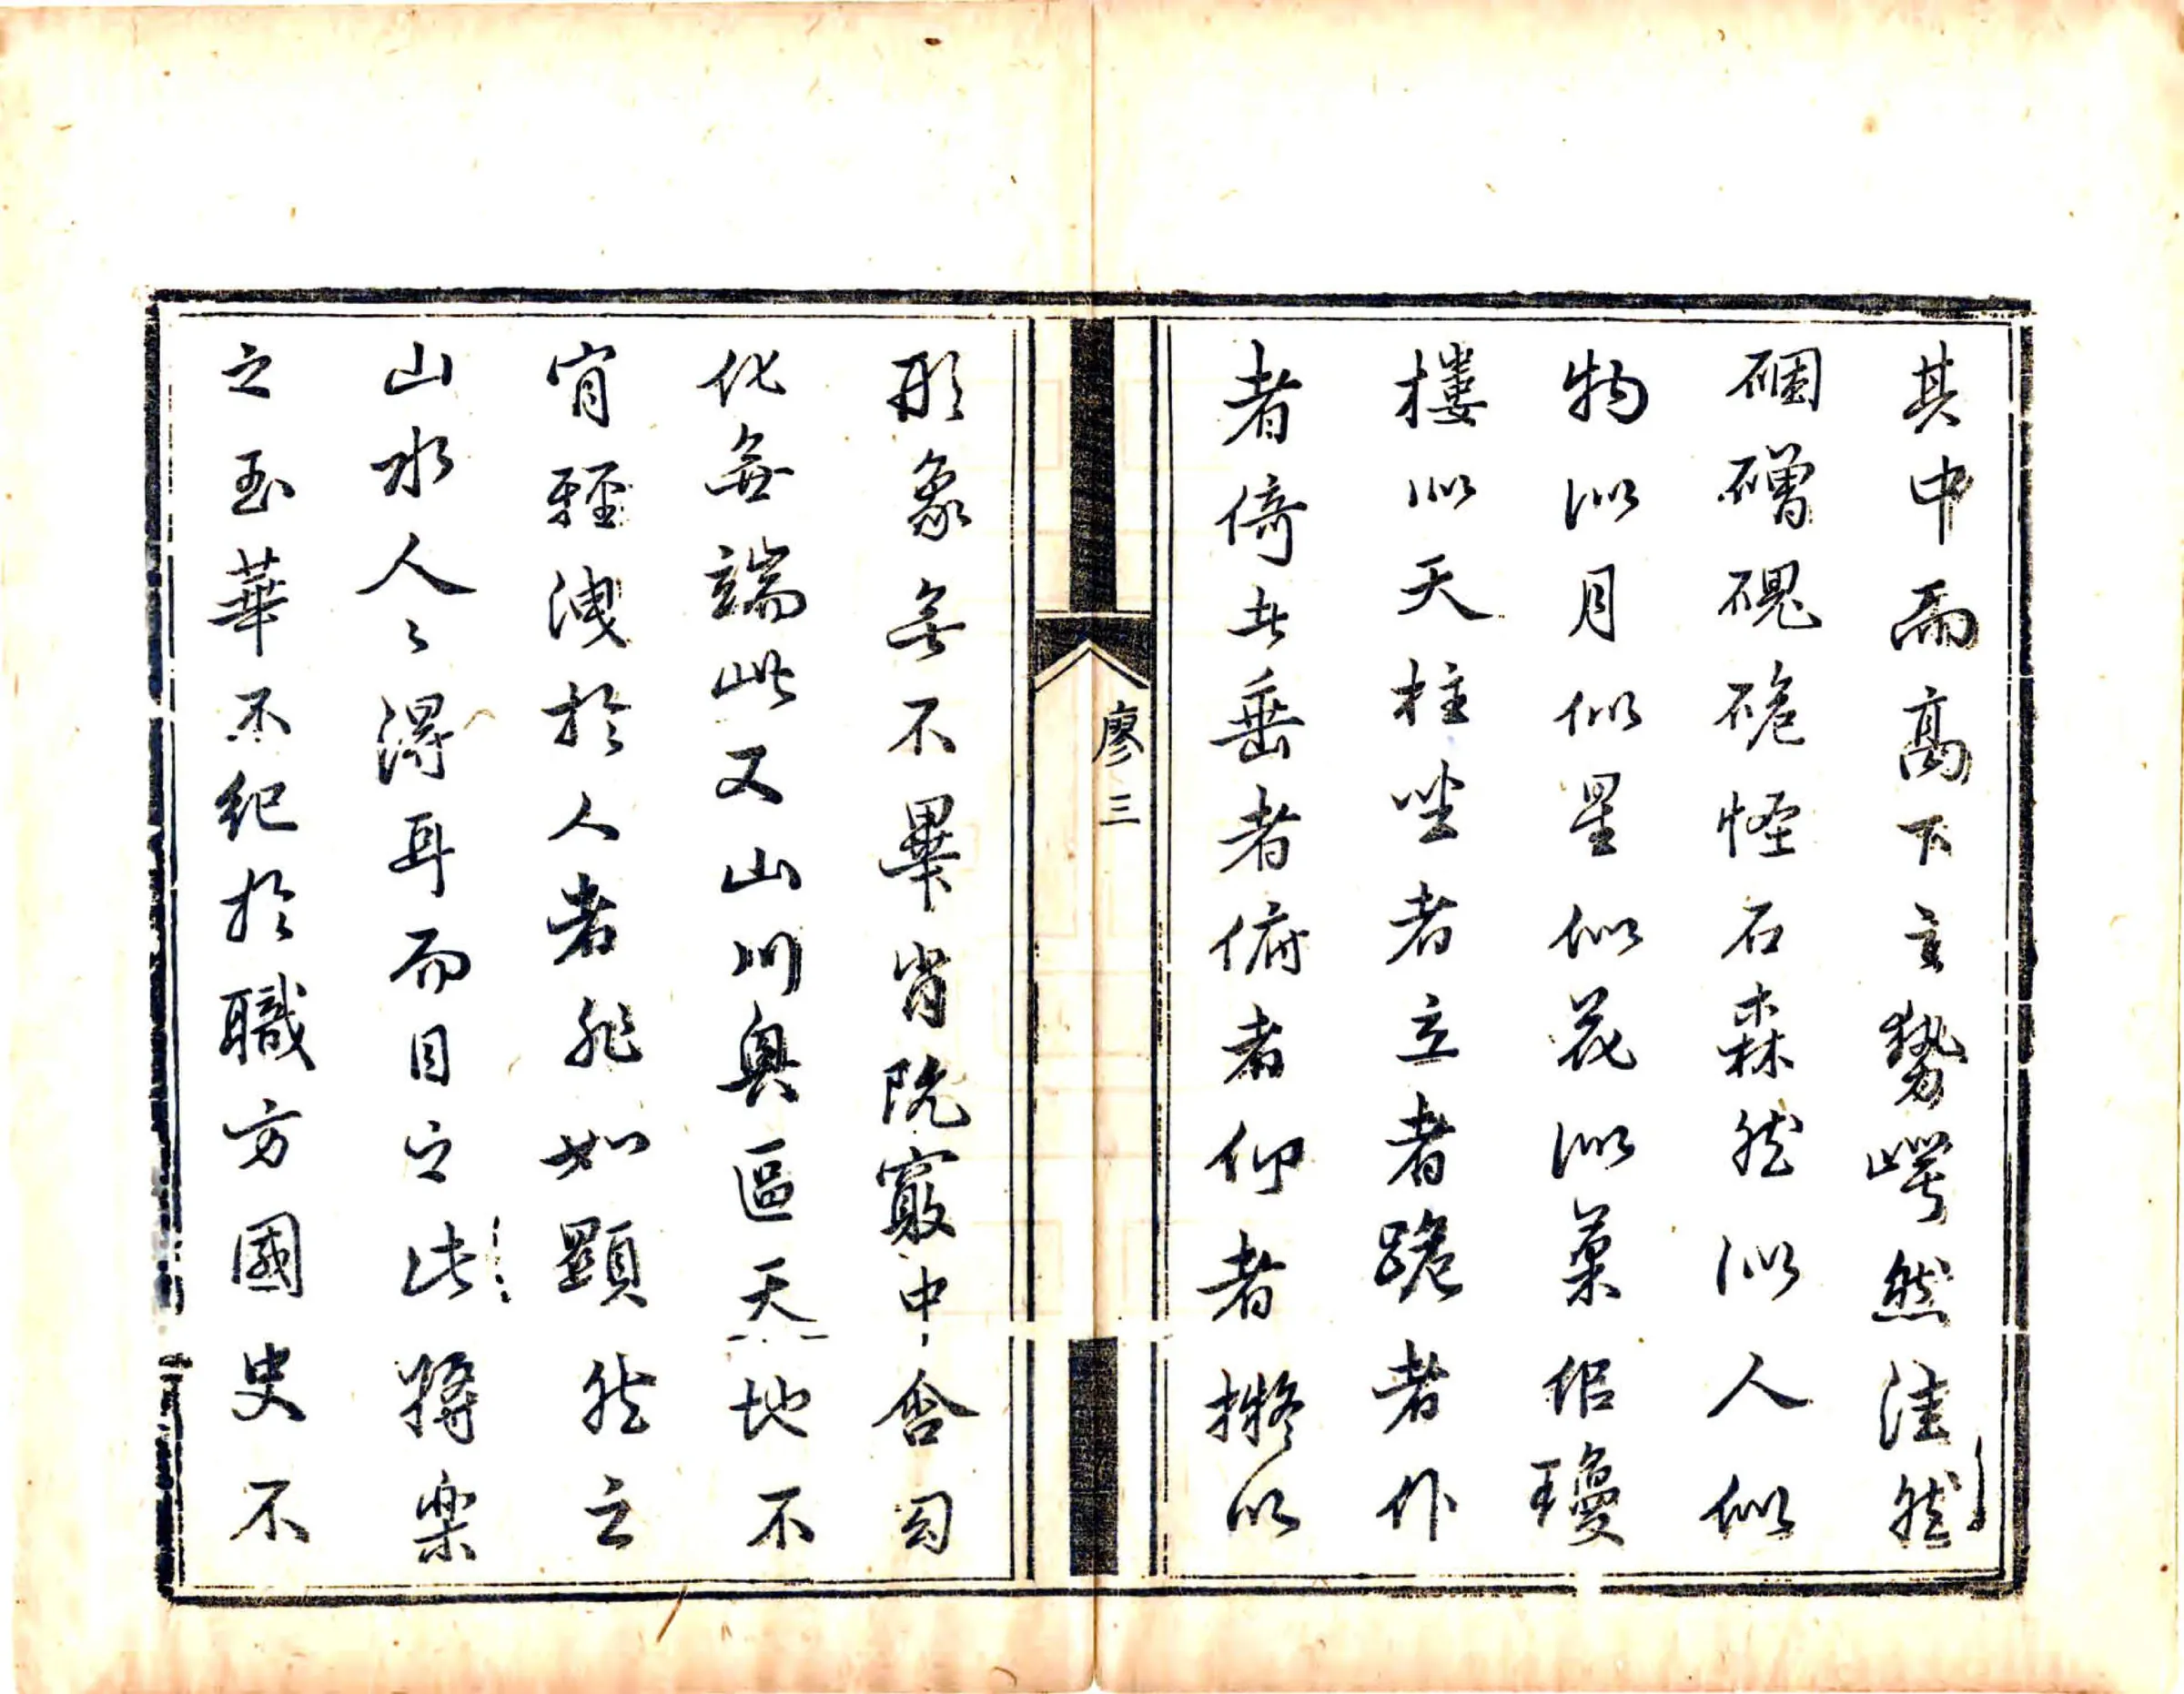 其中而高下之勢崿然洼然
硱磳磈硊怪石森然似人似
物似月似星似花似菓侶瓊
樓似天柱坐者立者跪者作
者倚者垂者俯者仰者擬以
廖三
形象無不畢肖阮竅中含勾
化無端此又山川奧區天地不
肯輕洩於人者非如顯然之
山水人〻得耳而目之此將樂
之玉華不紀於職方國史不